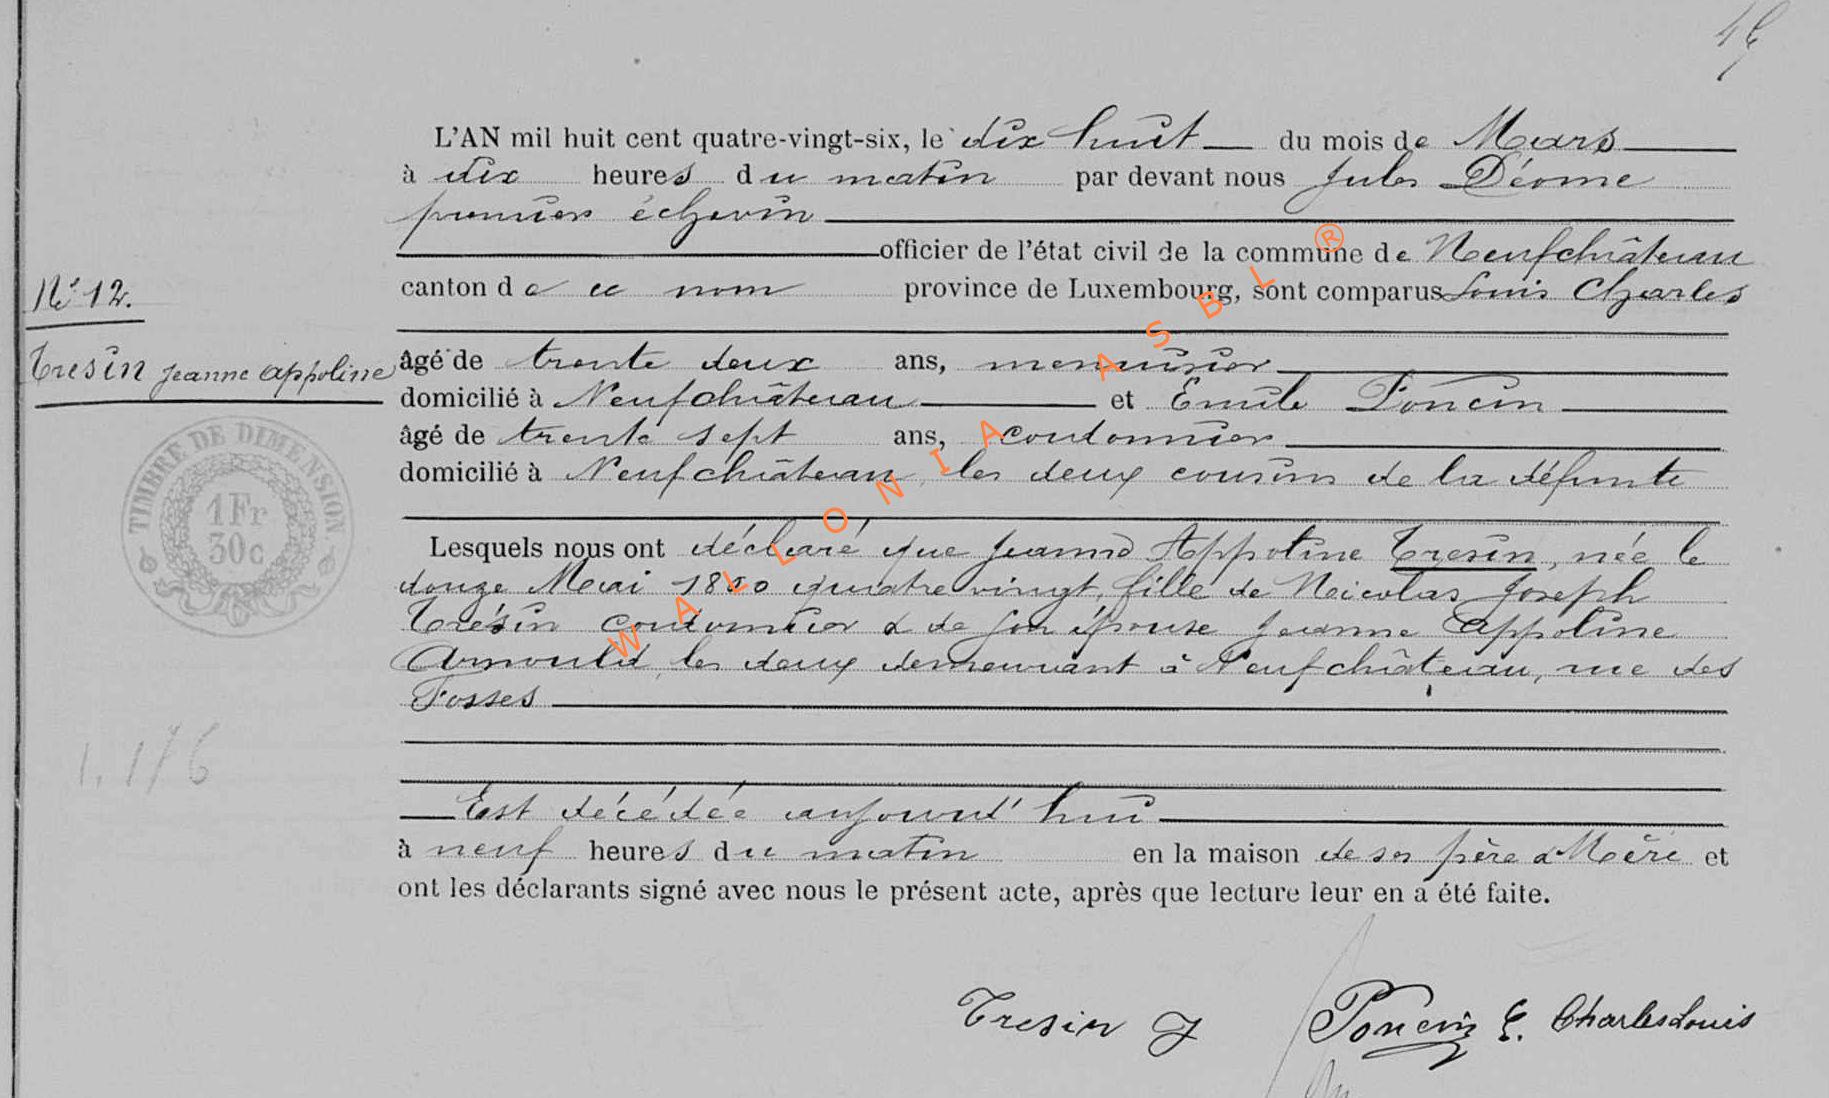 L'AN mil huit cent quatre-vingt-six, le dix huit du mois de Mars
à dix heures du matin par devant nous Jules Déome
premier échevin
officier de l'état civil de la commune de Neufchâteau
canton de ce nom province de Luxembourg, sont comparus Louis Charles
N° 12.
Tresin Jeanne Appoline
âgé de trente deux ans, menuisier
domicilié à Neufchâteau et Emile Poncin
âgé de trente sept ans, cordonnier
domicilié à Neufchâteau, les deux cousins de la défunte
TIMBRE DE DIMENSION
1Fr
30c
Lesquels nous ont déclaré que Jeanne Appoline Tresin, née le
douze Mai 1880 quatre vingt, fille de Nicolas Joseph
Trésin cordonnier & de son épouse Jeanne Appoline
Arnould, les deux demeurant à Neufchâteau, rue des
Fosses
1.176
Est décédée aujourd'hui
à neuf heures du matin en la maison de ses père & Mère et
ont les déclarants signé avec nous le présent acte, après que lecture leur en a été faite.
Tresin J Poncin E. Charles Louis
WALLONIA ASBL ®